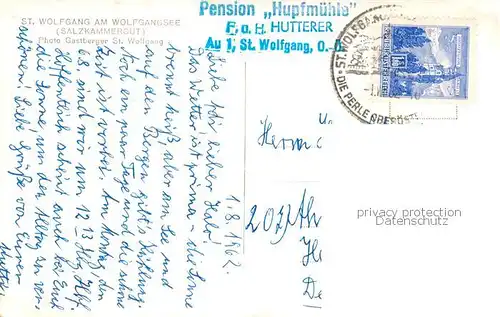 ST. WOLFGANG AM WOLFGANGSEE
(SALZKAMMERGUT)
Photo Gastberger St. Wolfgang
Pension „Hupfmühle"
F. u. H. HUTTERER
Au 1, St. Wolfgang, O.-Ö.
ST. WOLFGANG
DIE PERLE OBERÖST
1.8.1962.
Liebe lieber
Das Wetter ist prima – die Sonne
brennt heiß, aber am See und
auf den Bergen gibt's Kühlung.
Noch ein paar Tage und die schöne
Zeit ist vorbei. Am Montag, den
6. sind wir um 12.13
Hoffentlich scheint auch bei Euch
die Sonne, um den Alltag zu ver-
schönen! Liebe Grüße von Eurer
Mutti
Herrn
privacy protection
Datenschutz